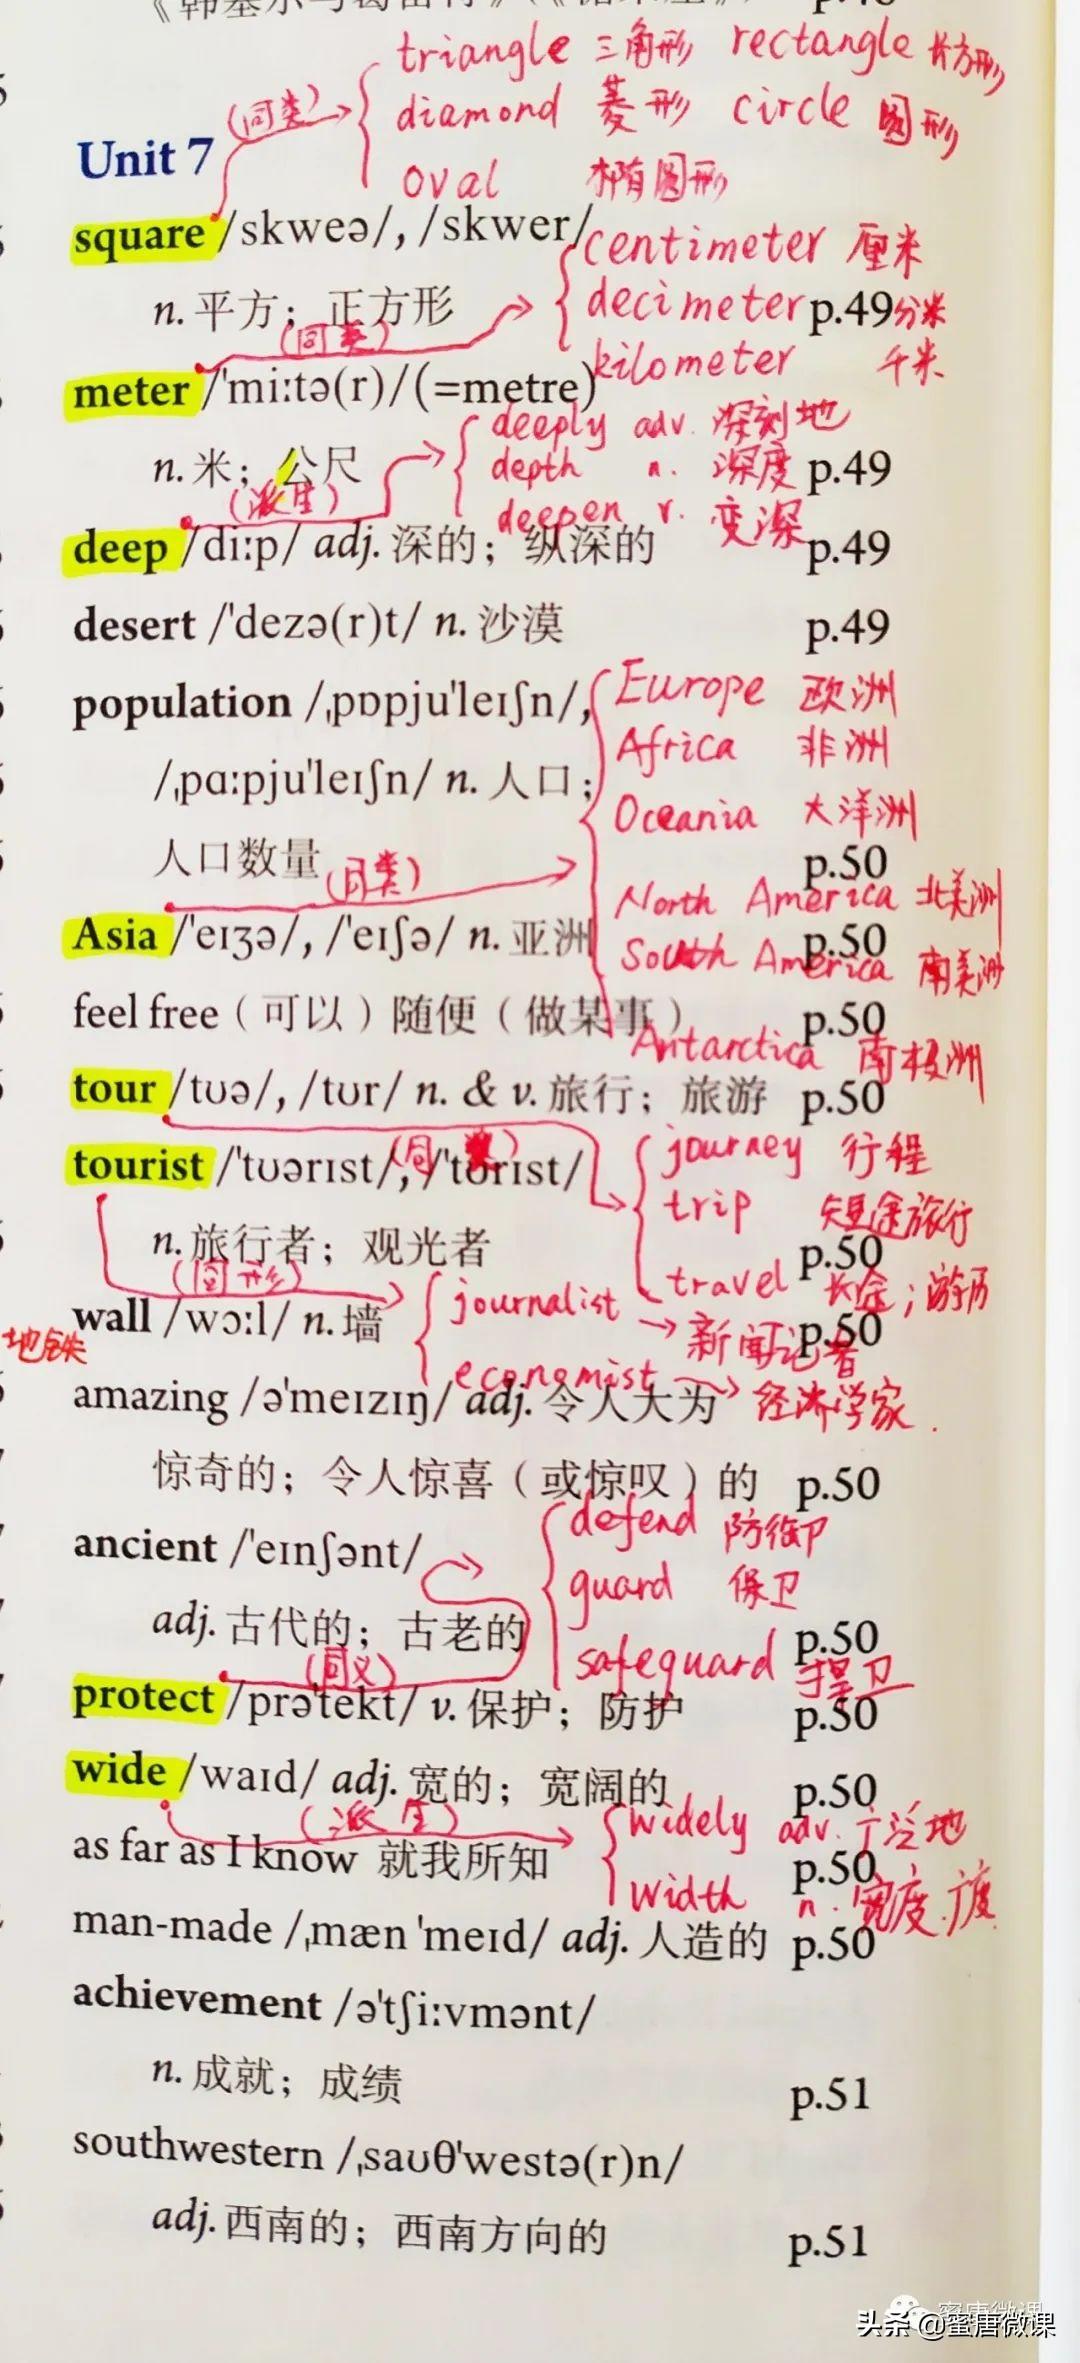 triangle 三角形 rectangle 长方形
(同类)
diamond 菱形 circle 圆形
Unit 7
oval 椭圆形
square /skweə/, /skwer/
centimeter 厘米
n. 平方；正方形
decimeter p.49 分米
(同类)
kilometer 千米
meter /ˈmiːtə(r)/ (=metre)
deeply adv. 深刻地
n. 米；公尺
depth n. 深度 p.49
(派生)
deepen v. 变深
deep /diːp/ adj. 深的；纵深的 p.49
desert /ˈdezə(r)t/ n. 沙漠 p.49
population /ˌpɒpjuˈleɪʃn/,
Europe 欧洲
Africa 非洲
/ˌpɑːpjuˈleɪʃn/ n. 人口；
Oceania 大洋洲
人口数量 p.50
(同类)
North America 北美洲
Asia /ˈeɪʒə/, /ˈeɪʃə/ n. 亚洲 p.50
South America 南美洲
feel free（可以）随便（做某事） p.50
Antarctica 南极洲
tour /tʊə/, /tʊr/ n. & v. 旅行；旅游 p.50
(同类)
journey 行程
tourist /ˈtʊərɪst/, /ˈtʊrɪst/
trip 短途旅行
n. 旅行者；观光者 p.50
(同形)
travel 长途；游历
journalist → 新闻记者
wall /wɔːl/ n. 墙 p.50
地铁
economist → 经济学家.
amazing /əˈmeɪzɪŋ/ adj. 令人大为
惊奇的；令人惊喜（或惊叹）的 p.50
defend 防御卫
ancient /ˈeɪnʃənt/
guard 保卫
adj. 古代的；古老的 p.50
safeguard 捍卫
(同义)
protect /prəˈtekt/ v. 保护；防护 p.50
wide /waɪd/ adj. 宽的；宽阔的 p.50
(派生)
widely adv. 广泛地
as far as I know 就我所知 p.50
width n. 宽度.广度
man-made /ˌmæn ˈmeɪd/ adj. 人造的 p.50
achievement /əˈtʃiːvmənt/
n. 成就；成绩 p.51
southwestern /ˌsaʊθˈwestə(r)n/
adj. 西南的；西南方向的 p.51
蜜唐微课
头条 @蜜唐微课